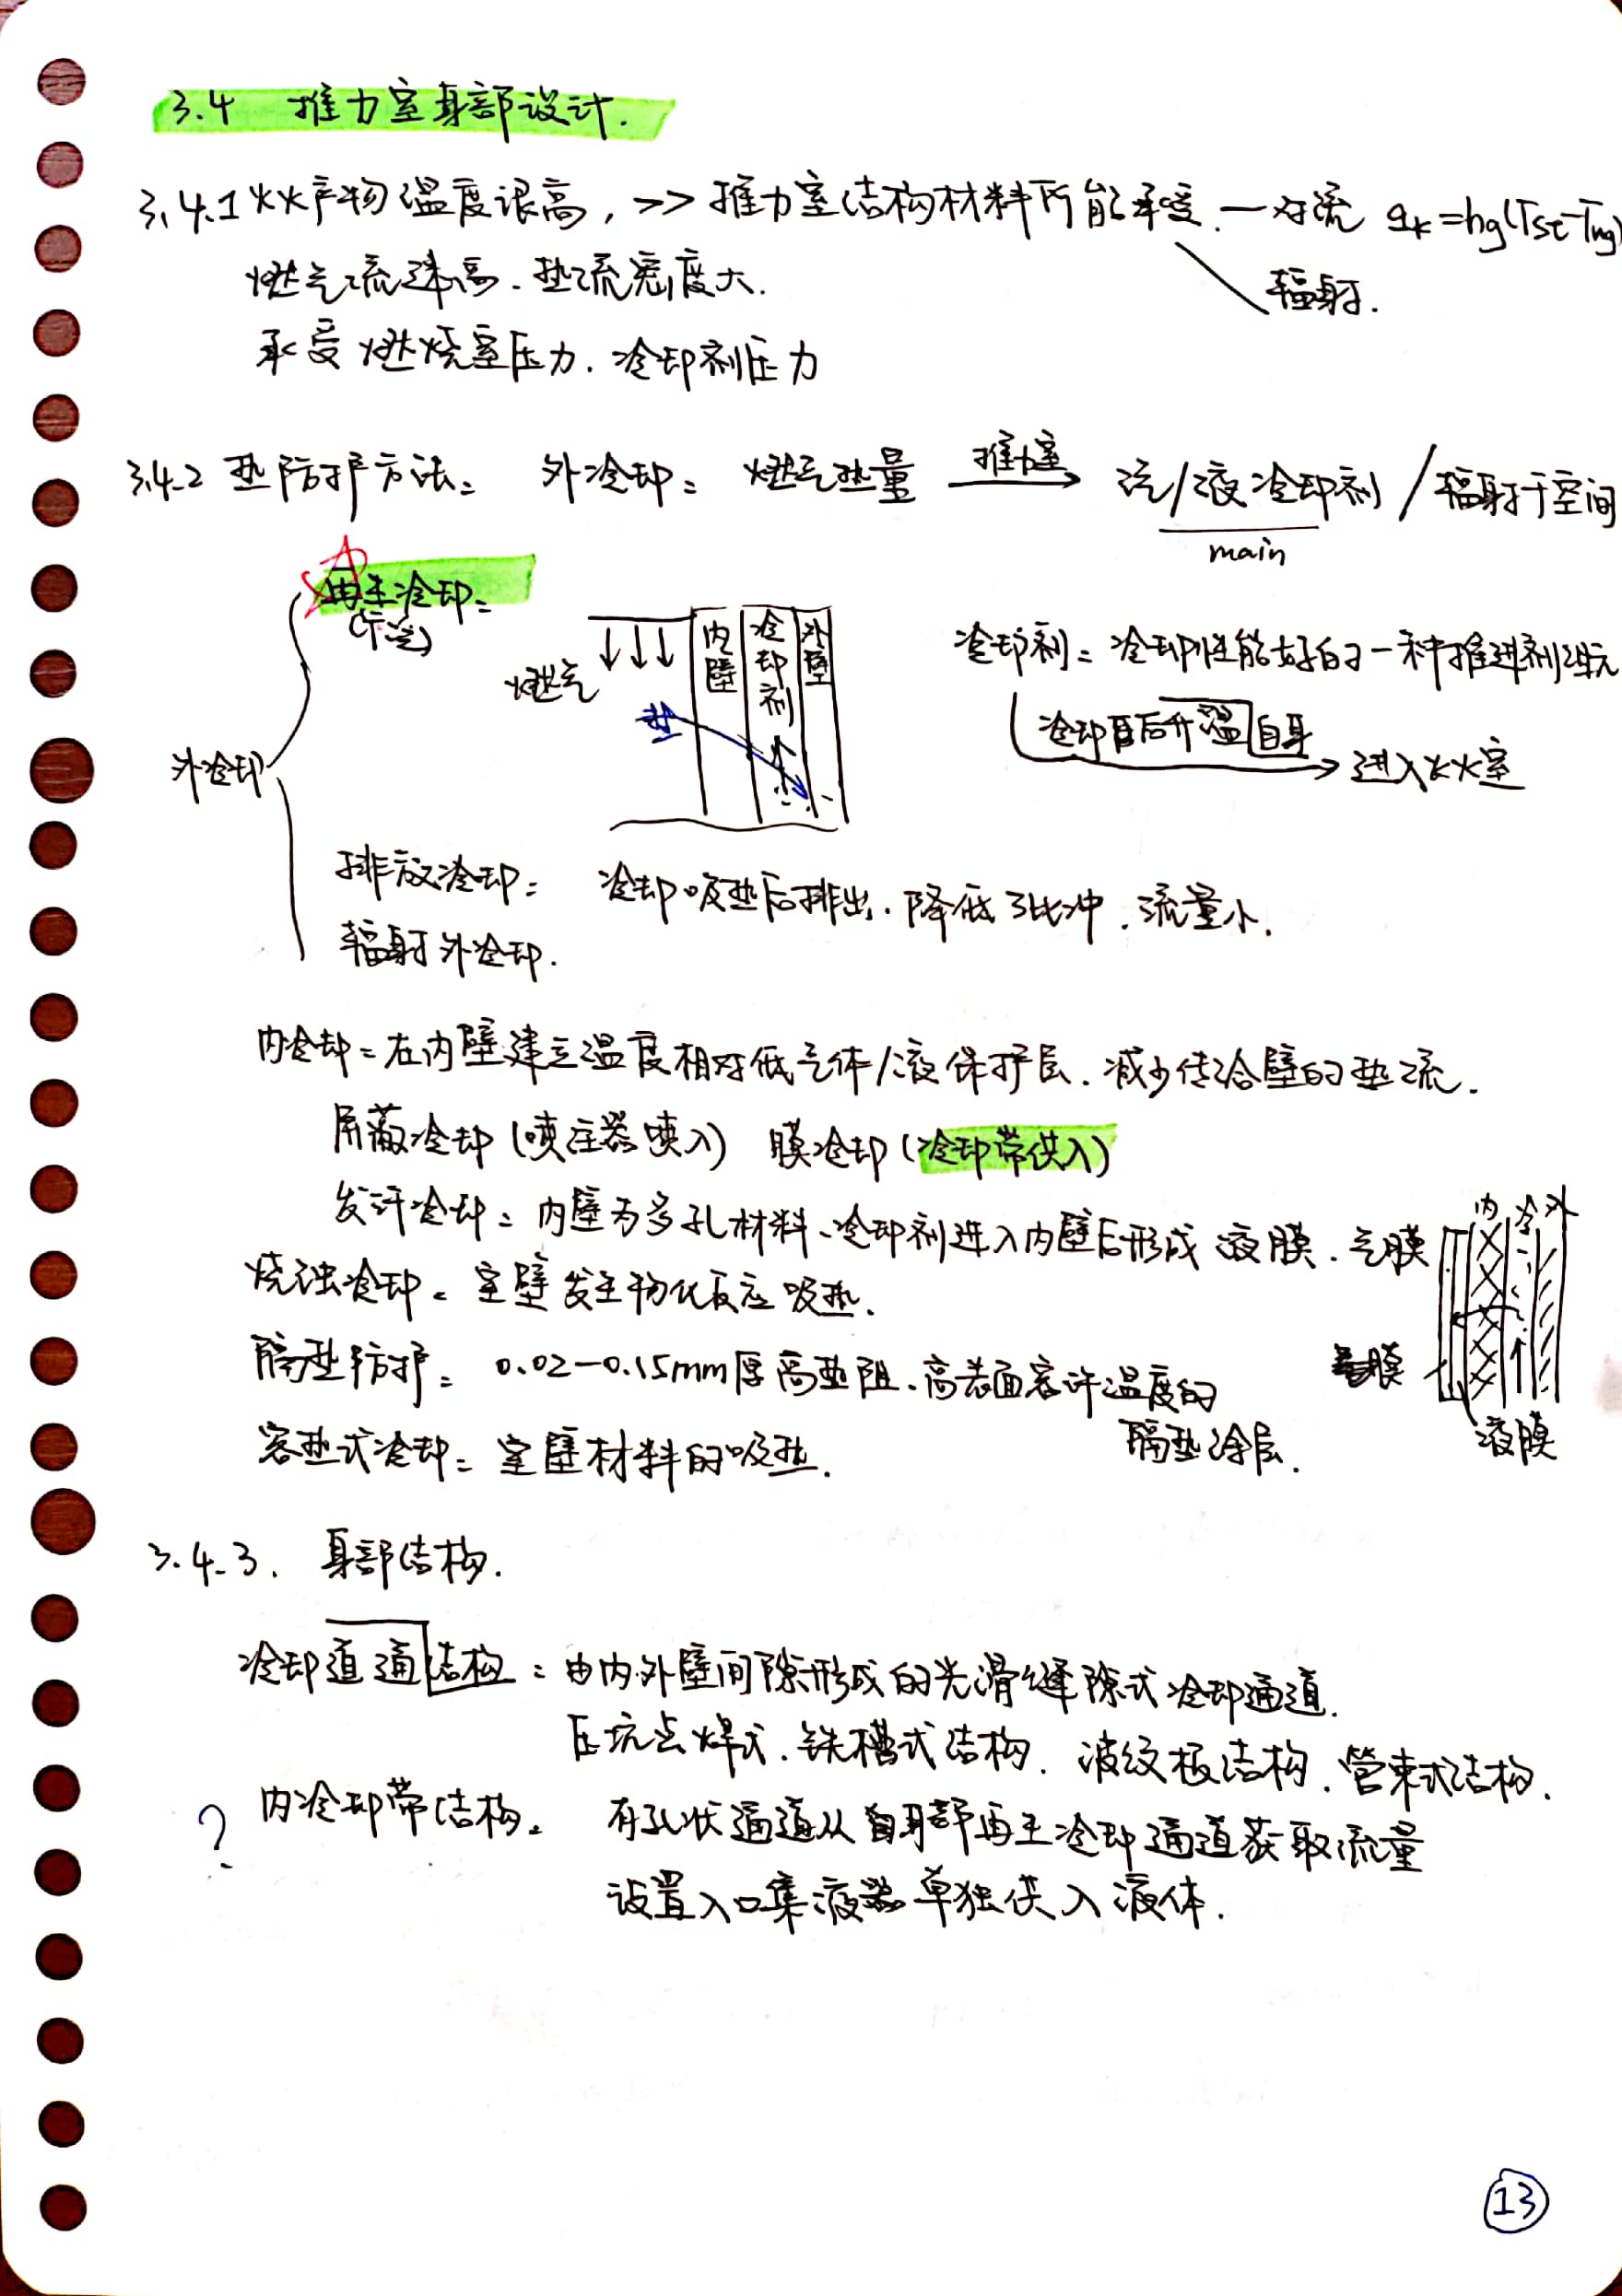 3.4 推力室身部设计.
3.4.1 火火产物温度很高, >> 推力室结构材料所能承受. — 对流 qk=hg(Tst-Twg)
辐射.
燃气流速高. 热流密度大.
承受燃烧室压力. 冷却剂压力
3.4.2 热防护方法: 外冷却: 燃气热量 推力室 → 流/液冷却剂 / 辐射于空间
main
再生冷却:
燃气 内壁 冷却剂 外壁
热
冷却剂: 冷却性能好的一种推进剂组元
冷却自身后升温
进入火火室
外冷却
排放冷却: 冷却吸热后排出. 降低了比冲. 流量小.
辐射外冷却.
内冷却: 在内壁建立温度相对低气体/液保护层. 减少传给壁的热流.
屏蔽冷却 (喷注器喷入) 膜冷却 (冷却带供入)
发汗冷却: 内壁为多孔材料、冷却剂进入内壁后形成 液膜. 气膜
内 冷 外
烧蚀冷却: 室壁发生物化反应吸热.
隔热防护: 0.02-0.15mm厚高热阻. 高表面容许温度的
隔热涂层.
膜
液膜
容热式冷却: 室壁材料的吸热.
3.4.3. 身部结构.
冷却通道结构: 由内外壁间隙形成的光滑缝隙式冷却通道.
压坑点焊式. 铣槽式结构. 波纹板结构. 管束式结构.
? 内冷却带结构: 有孔状通道从身部再生冷却通道获取流量
设置入口集液器单独供入液体.
13